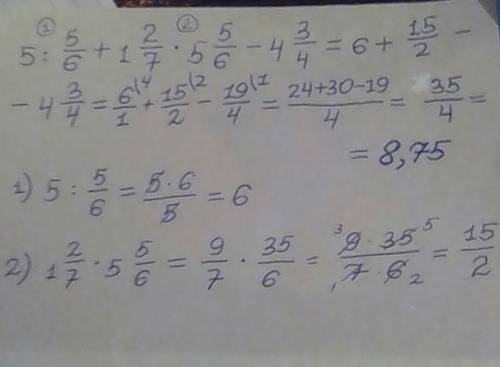 ① ②
5 : 5/6 + 1 2/7 · 5 5/6 - 4 3/4 = 6 + 15/2 -
- 4 3/4 = 6/1 \4 + 15/2 \2 - 19/4 \1 = 24+30-19/4 = 35/4 =
= 8,75
1) 5 : 5/6 = 5·6/5 = 6
2) 1 2/7 · 5 5/6 = 9/7 · 35/6 = ³9·35⁵/₁7·6₂ = 15/2